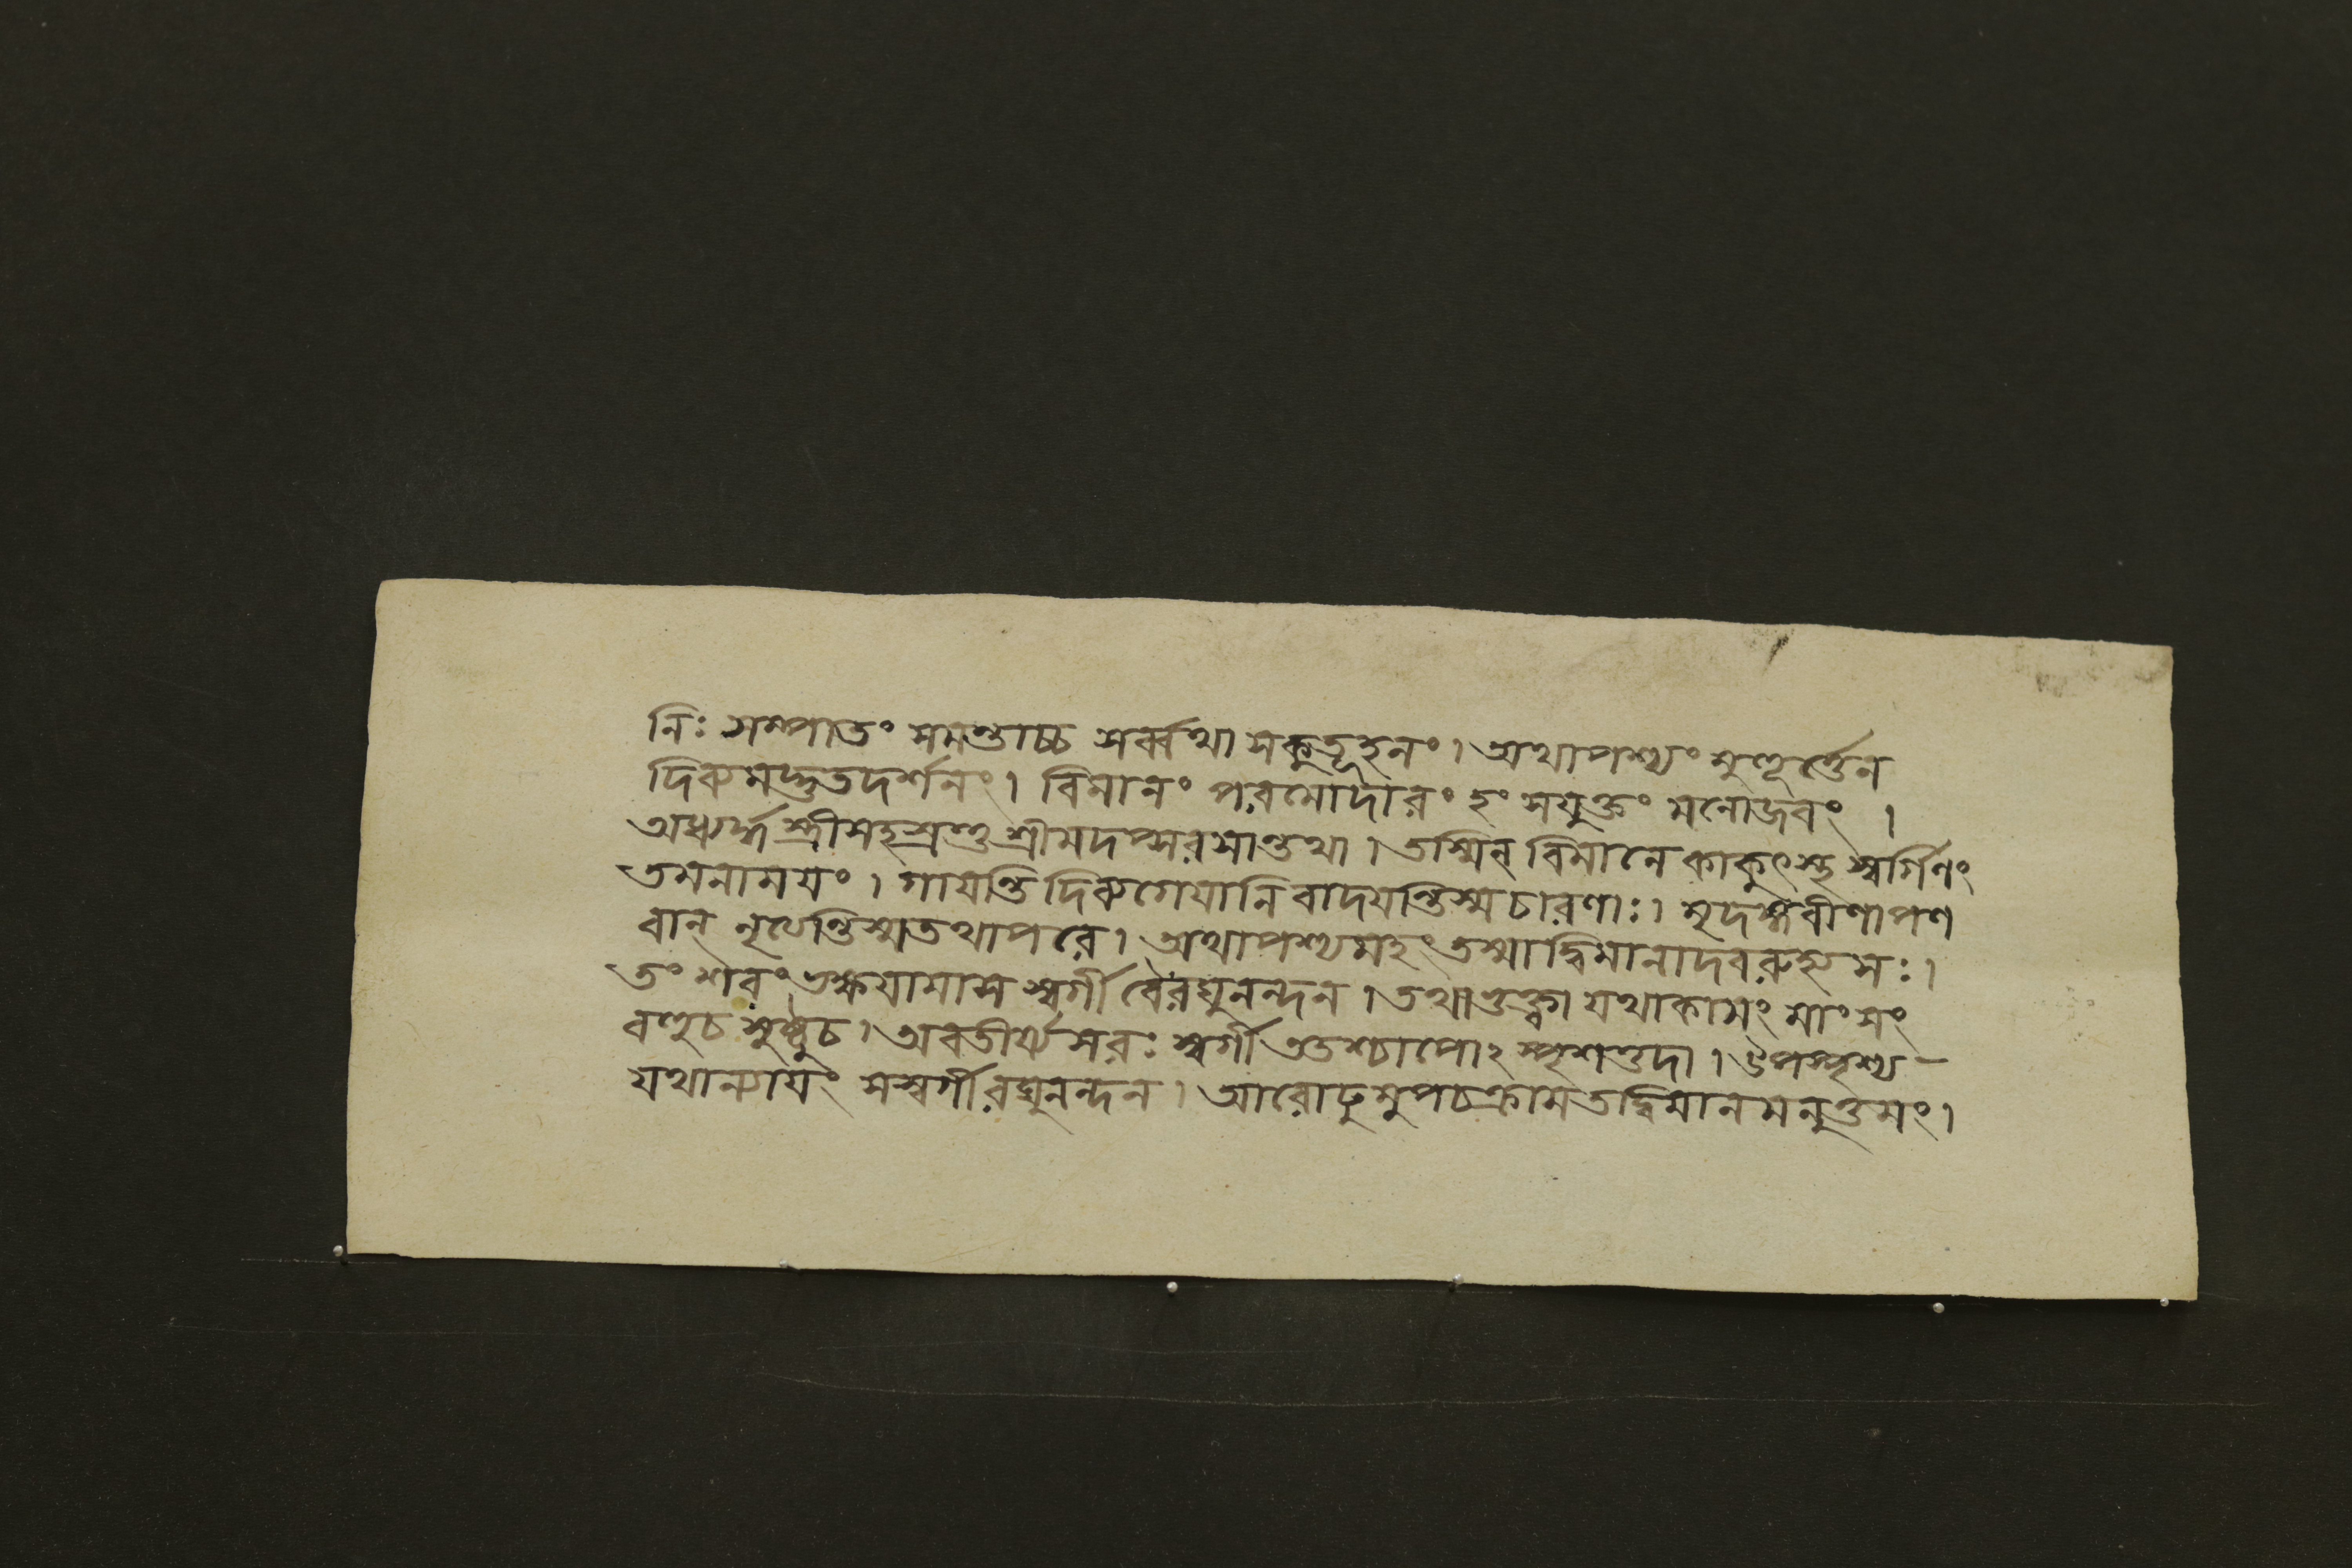 নিঃ সম্পাতং সমন্তাচ্চ সর্ব্বথা সকুতূহলং। অথাপশ্যং মুহূর্ত্তেন
দিব্যমদ্ভুতদর্শনং। বিমানং পরমোদারং হংসযুক্তং মনোজবং ।
অধ্যর্দ্ধ স্ত্রীসহস্রন্তু শ্রীমদপ্সরসান্তথা। তস্মিন্ বিমানে কাকুৎস্থ স্বর্গিণং
তমনাময়ং । গায়ন্তি দিব্যগেয়ানি বাদয়ন্তিস্মচারণাঃ। মৃদঙ্গবীণাপণ
বান্ নৃত্যেন্তিস্মতথাপরে। অথাপশ্যমহং তস্মাদ্বিমানাদবরুহ্য সঃ।
তং শবং ভক্ষয়ামাস স্বর্গী বৈরঘুনন্দন। তথাভুক্ত্বা যথাকামং মাংসং
বহুচ সুষ্ঠুচ। অবতীর্য্য সরঃ স্বর্গী ততশ্চাপোঽ স্পৃশত্তদা। ঔপস্পৃশ্য -
যথান্যায়ং সস্বর্গীরঘুনন্দন। আরোঢুমুপচক্রাম তদ্বিমানমনুত্তমং।